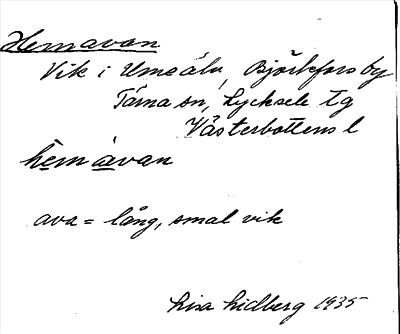 Hemavan
Vik i Umeälv, Björkfors by
Tärna sn, Lycksele tg
Västerbottens l
hemavan
ava = lång, smal vik
Lisa Lidberg 1935